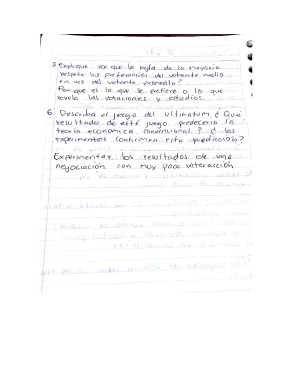 5 Explique por que la regla de la mayoria
respeta las preferencias del votante medio
en vez del votante promedio?
Por que es lo que se prefiere o lo que
revela las votaciones y estudios.
6 Describa el juego del ultimatum ¿ Qué
resultado de esté juego predeceria la
teoria economica convencional? ¿ los
experimentos confirman esta prediccion?
Experimentar los resultados de una
negociación con muy poca interacción